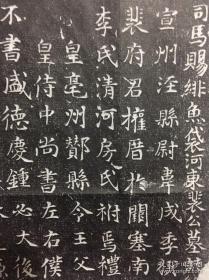 司馬賜緋魚袋河東裴公墓
宣州涇縣尉韋成季
裴府君權厝於闕塞南
李氏清河房氏祔焉禮
皇亳州酇縣令王父
皇侍中尚書左右僕
不書盛德慶鍾必大後